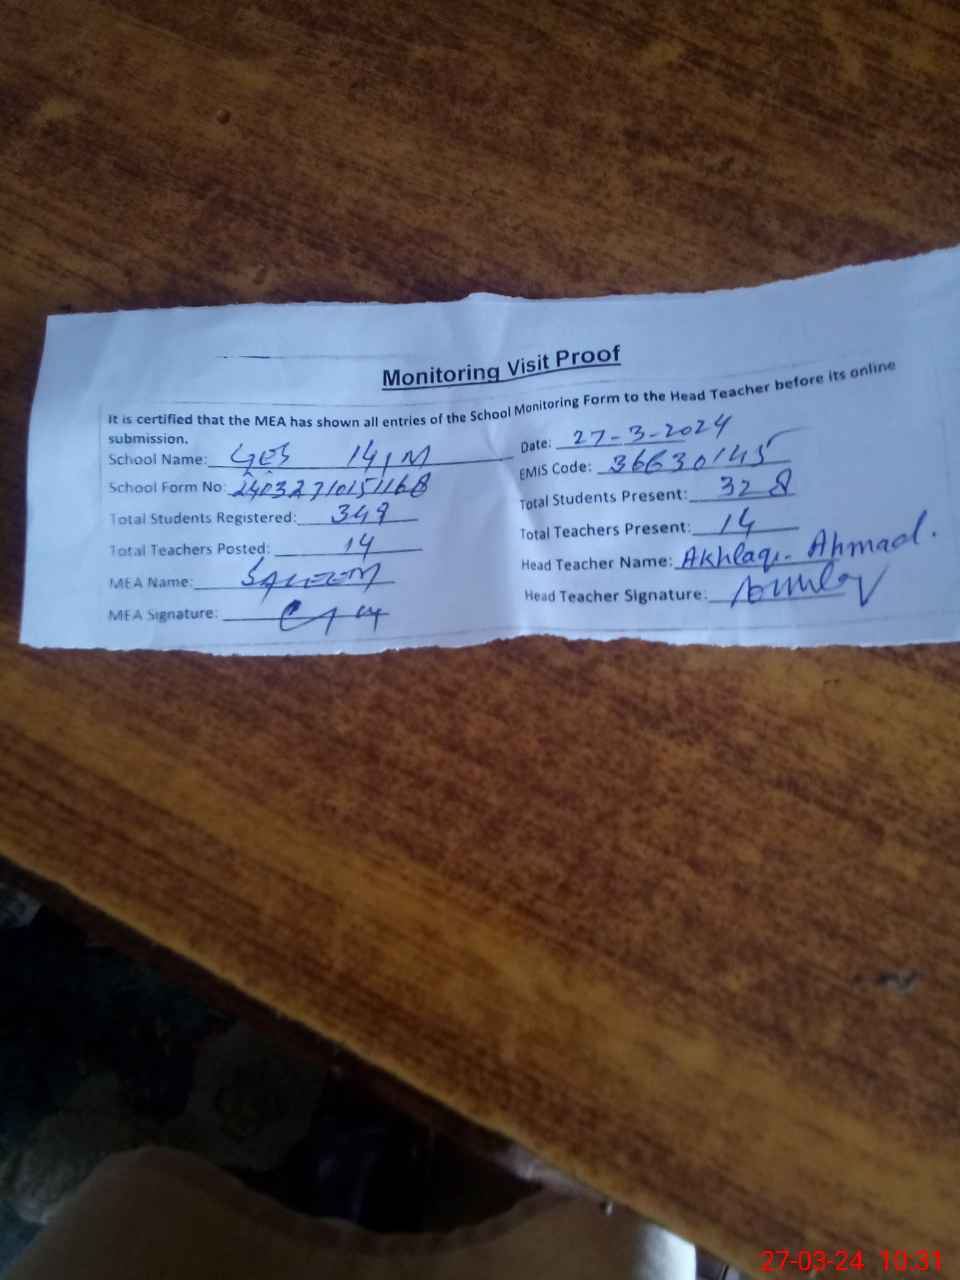 Monitoring Visit Proof
It is certified that the MEA has shown all entries of the School Monitoring Form to the Head Teacher before its online
submission.
School Name: GES 14/M
Date: 27-3-2024
School Form No:
EMIS Code: 36630145
Total Students Registered: 349
Total Students Present: 328
Total Teachers Posted: 14
Total Teachers Present: 14
MEA Name: SALEEM
Head Teacher Name: Akhlaq Ahmad.
MEA Signature:
Head Teacher Signature:
27-03-24 10:31